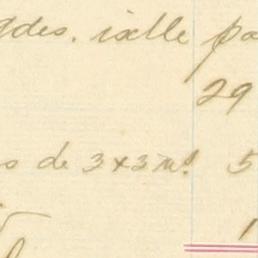 gdes. ixelle pa
29
s de 3x3 ms. 5
1